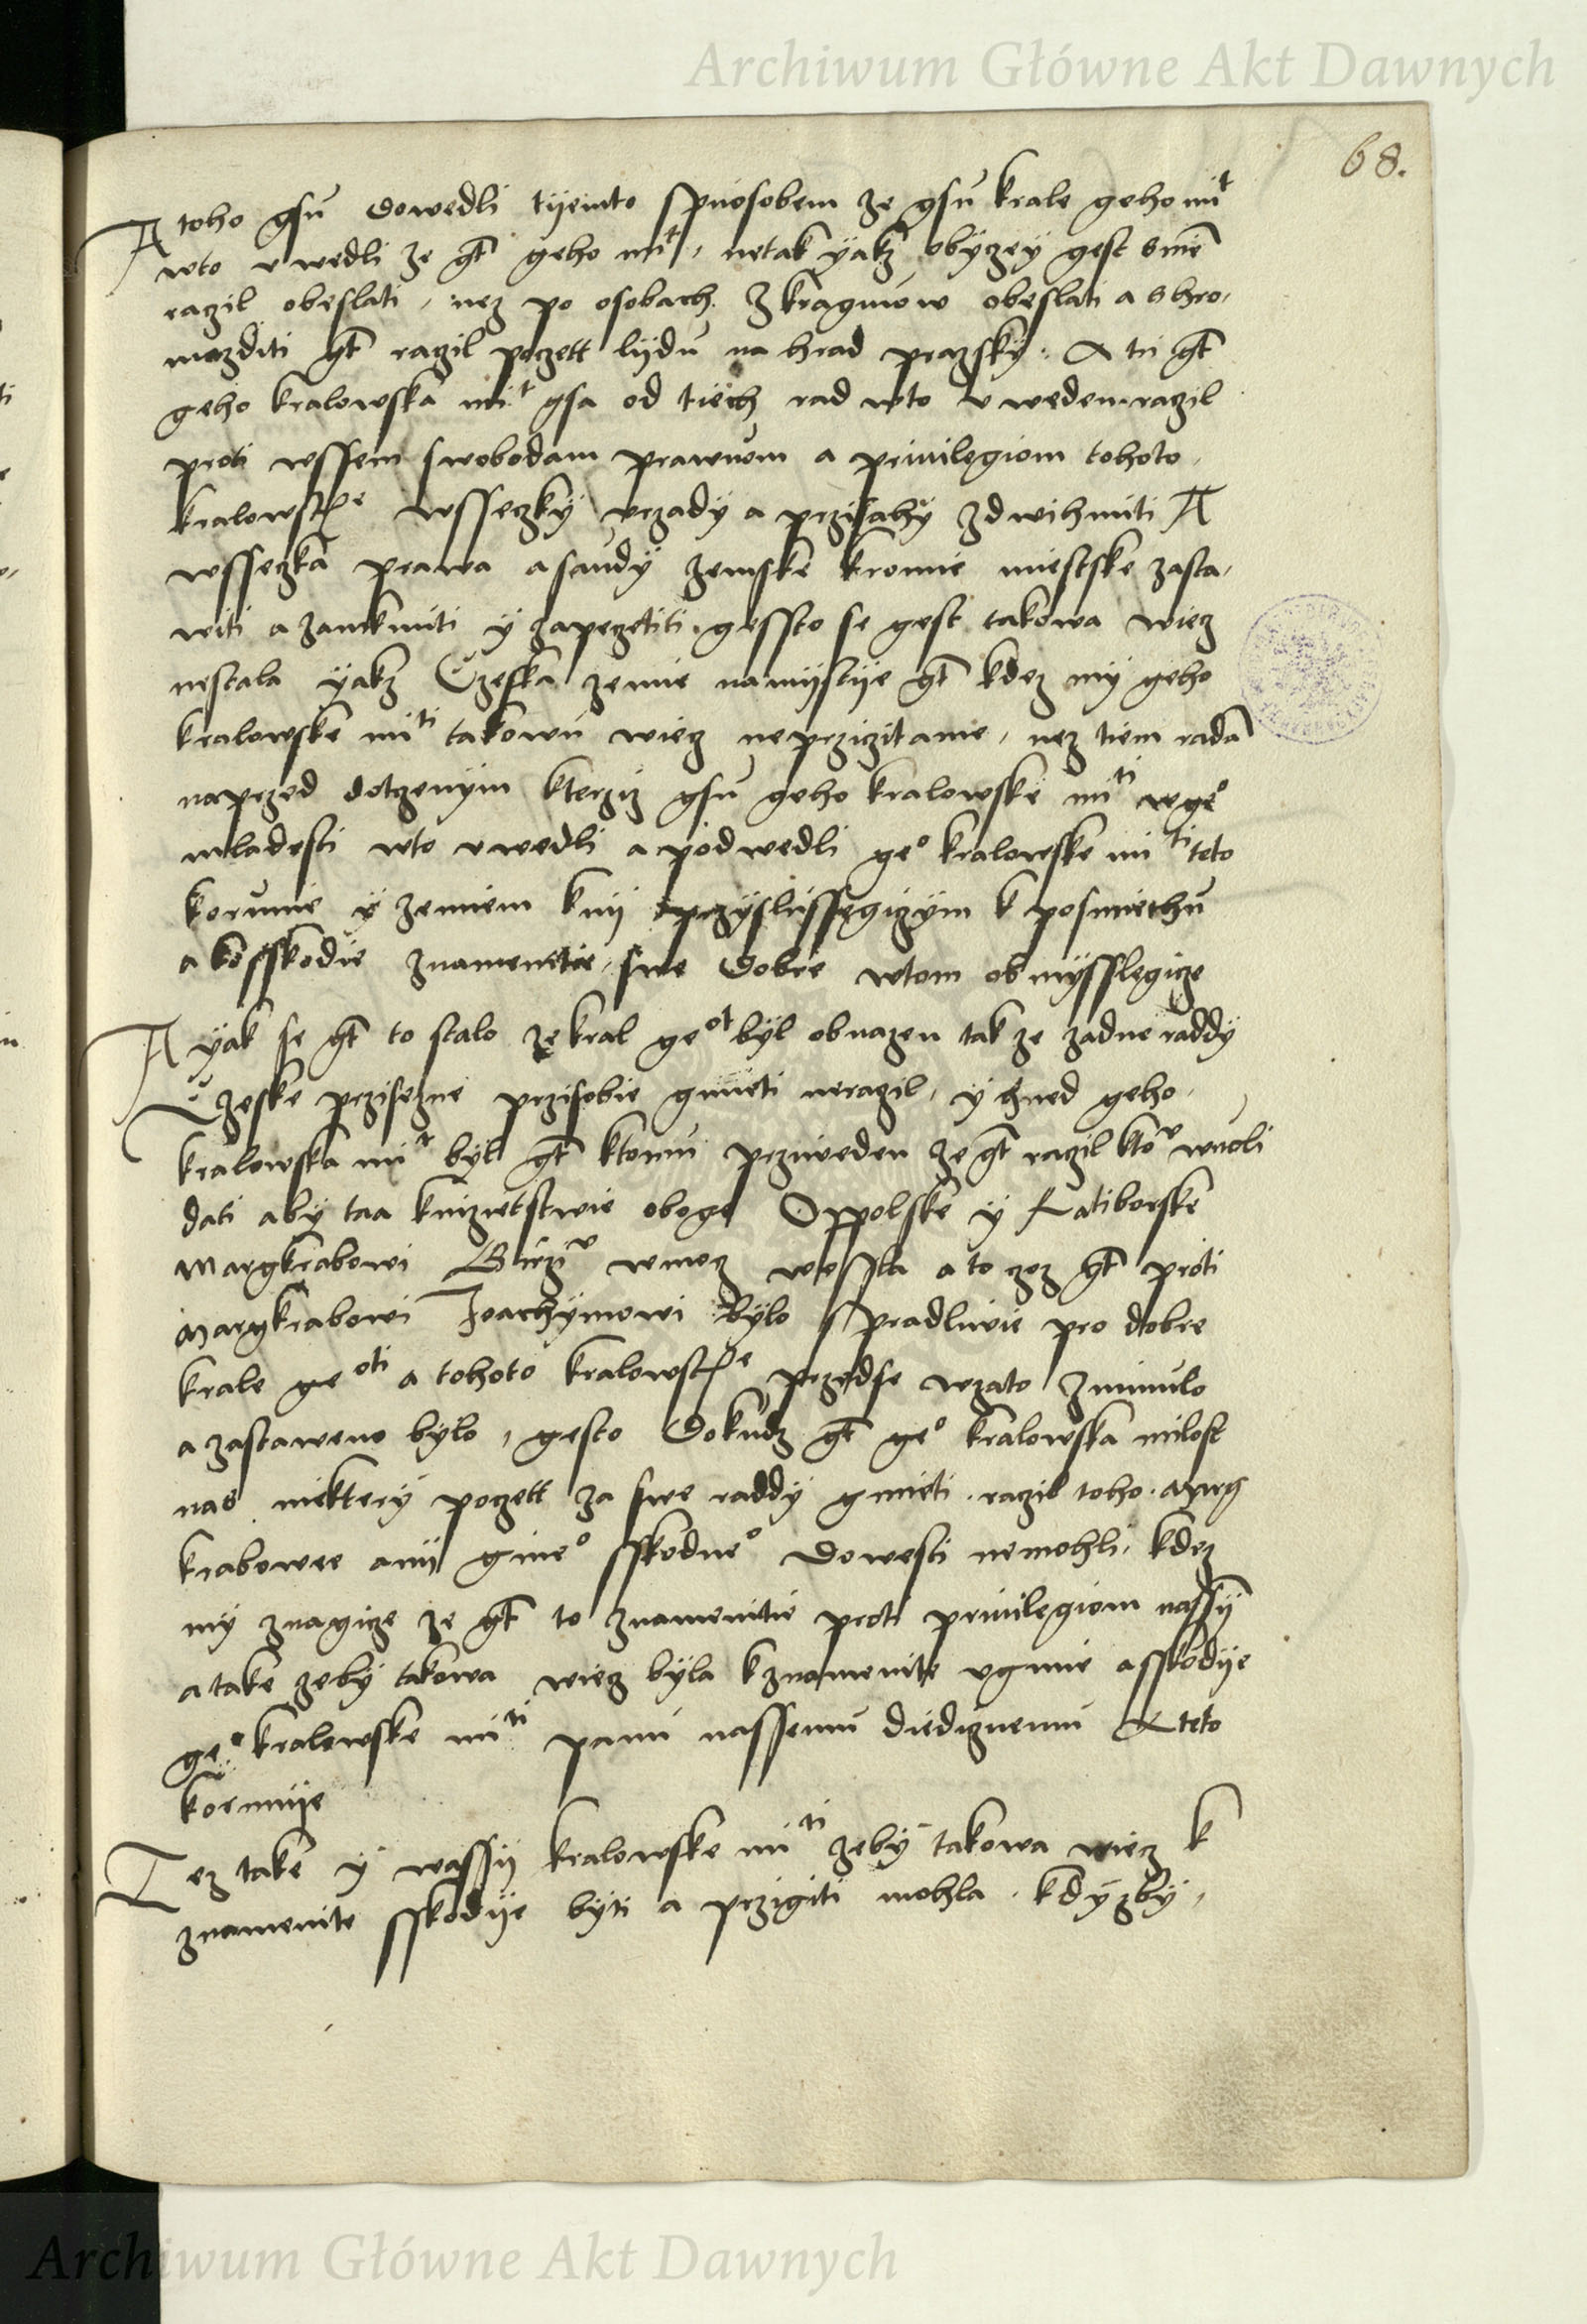 Archiwum Główne Akt Dawnych
68.
A toho gsu dowedli tijemto spuosobem ze gsu krale geho mit
wto uwedli ze gt geho mit, netak yakz obyczey gest Snie
raczil obeslati, nez po osobach z kraguow obeslati a shro,
mazditi gt raczil poczett lijdu na hrad prazsky. A tu gt
geho kralowska mit gsa od tiech rad wto uweden raczil
proti wssem swobodam prawuom a priuilegiom tohoto
kralowstwe wsseczky vrzady a przisahy zdwihnuti A
wsseczka prawa a saudy zemske kromie miestske zasta,
witi a zamknuti y zapecztiti gessto se gest takowa wiecz
nestala yakz Czeska zemie namijstije gt kdez my geho
kralowske miti takowu wiecz neprzicztame, nez tiem radam
naprzed dotczenym kterziz gsu geho kralowske miti wgeo
mladosti wto uwedli a podwedli geo kralowske miti teto
korunie y zemiem knij przyslussegiczym k posmiechu
a kosskodie znamenite, swe dobre wtom obmysslegicze
A yak se gt to stalo ze kral geot byl obnazen tak ze zadne raddy
Czeske przisezne przisobie gmieti neraczil, y hned geho
kralowska mit byl gt ktomu przweden ze gt raczil ktov wuoli
dati aby taa knizetstwie oboge Oppolske y Ratiborske
Margkrabowi Girziv wmocz wessla a to czoz gt proti
Margkrabowi Joachymowi bylo spradliwie pro dobre
krale geoti a tohoto kralowstwe przedse wzato zminulo
a zastaweno bylo, gesto dokudz gt geo kralowska milost
nas niektery poczett za swe raddy gmieti raczil toho Marg
krabowee anij gineo sskodneo dowesti nemohli, kdez
my znagicze ze gt to znamenitie proti priuilegiom nassy
a take zeby takowa wiecz byla k znamenite vgmie a sskodije
geo kralowske miti panu nassemu diediczuemu A teto
korunije
Tez take y wassij kralowske miti zeby takowa wiecz k
znamenite sskodije byti a przigiti mohla kdyzby,
Archiwum Główne Akt Dawnych